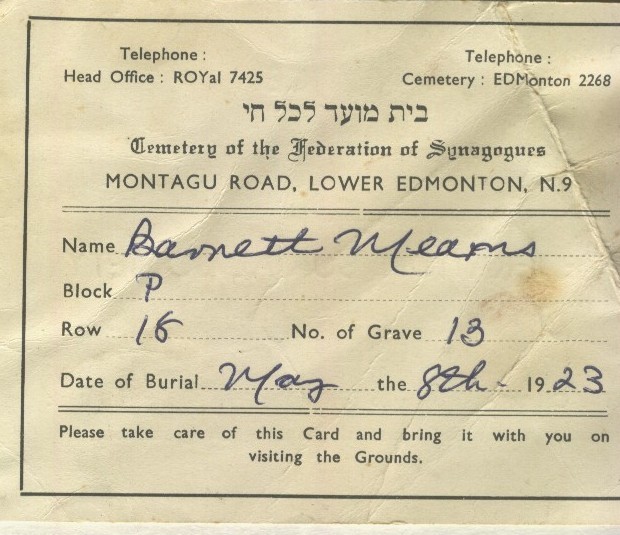 Telephone :
Head Office : ROYal 7425
Telephone :
Cemetery : EDMonton 2268
בית מועד לכל חי
Cemetery of the Federation of Synagogues
MONTAGU ROAD, LOWER EDMONTON, N.9
Name Barnett Mearns
Block P
Row 16 No. of Grave 13
Date of Burial May the 8th - 1923
Please take care of this Card and bring it with you on
visiting the Grounds.